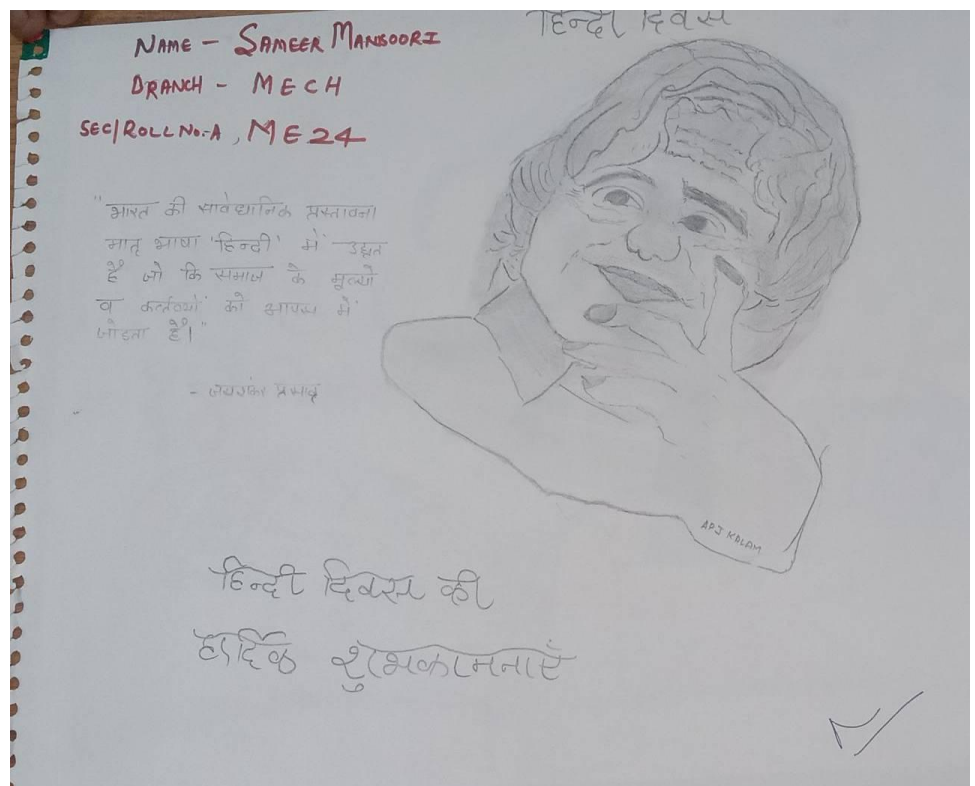 हिन्दी दिवस
NAME - SAMEER MANSOORI
BRANCH - MECH
SEC/ROLL NO.-A, ME24
"भारत की सावैधानिक प्रस्तावना
मातृ भाषा 'हिन्दी' में उद्धृत
है जो कि समाज के मूल्यों
व कर्तव्यों को आपस में
जोड़ता है।"
- जयशंकर प्रसाद
APJ KALAM
हिन्दी दिवस की
हार्दिक शुभकामनाएँ